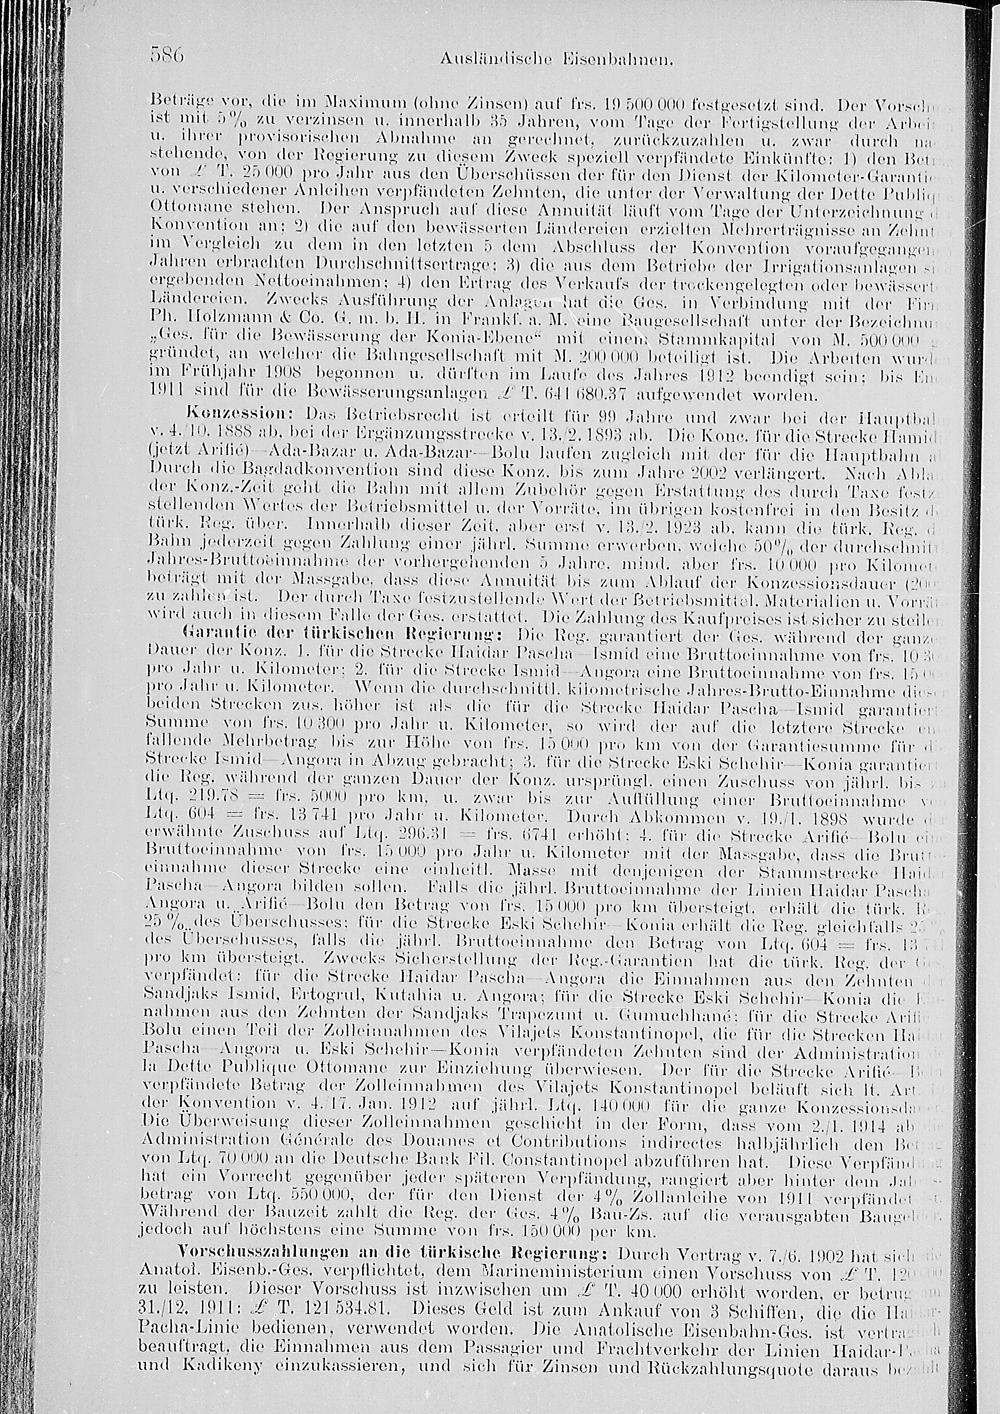 586
Ausländische Eisenbahnen.
Beträge vor, die im Maximum (ohne Zinsen) auf frs. 19 500 000 festgesetzt sind. Der Vorsch
ist mit 5% zu verzinsen u. innerhalb 35 Jahren, vom Tage der Fertigstellung der Arbei
u. ihrer provisorischen Abnahme an gerechnet, zurückzuzahlen u. zwar durch na
stehende, von der Regierung zu diesem Zweck speziell verpfändete Einkünfte: 1) den Bet
von £ T. 25 000 pro Jahr aus den Überschüssen der für den Dienst der Kilometer-Garantie
u. verschiedener Anleihen verpfändeten Zehnten, die unter der Verwaltung der Dette Publiq
Ottomane stehen. Der Anspruch auf diese Annuität läuft vom Tage der Unterzeichnung d
Konvention an; 2) die auf den bewässerten Ländereien erzielten Mehrerträgnisse an Zehnt
im Vergleich zu dem in den letzten 5 dem Abschluss der Konvention voraufgegangen
Jahren erbrachten Durchschnittsertrage; 3) die aus dem Betriebe der Irrigationsanlagen s
ergebenden Nettoeinnahmen; 4) den Ertrag des Verkaufs der trockengelegten oder bewässert
Ländereien. Zwecks Ausführung der Anlagen hat die Ges. in Verbindung mit der Fir
Ph. Holzmann & Co. G. m. b. H. in Frankf. a. M. eine Baugesellschaft unter der Bezeichnu
„Ges. für die Bewässerung der Konia-Ebene“ mit einem Stammkapital von M. 500 000 g
gründet, an welcher die Bahngesellschaft mit M. 200 000 beteiligt ist. Die Arbeiten wurd
im Frühjahr 1908 begonnen u. dürften im Laufe des Jahres 1912 beendigt sein; bis En
1911 sind für die Bewässerungsanlagen £ T. 641 680.37 aufgewendet worden.
Konzession: Das Betriebsrecht ist erteilt für 99 Jahre und zwar bei der Hauptbah
v. 4./10. 1888 ab, bei der Ergänzungsstrecke v. 13./2. 1893 ab. Die Konc. für die Strecke Hamid
(jetzt Arifié)—Ada-Bazar u. Ada-Bazar—Bolu laufen zugleich mit der für die Hauptbahn a
Durch die Bagdadkonvention sind diese Konz. bis zum Jahre 2002 verlängert. Nach Abla
der Konz.-Zeit geht die Bahn mit allem Zubehör gegen Erstattung des durch Taxe festz
stellenden Wertes der Betriebsmittel u. der Vorräte, im übrigen kostenfrei in den Besitz d
türk. Reg. über. Innerhalb dieser Zeit, aber erst v. 13./2. 1923 ab, kann die türk. Reg. d
Bahn jederzeit gegen Zahlung einer jährl. Summe erwerben, welche 50% der durchschnit
Jahres-Bruttoeinnahme der vorhergehenden 5 Jahre, mind. aber frs. 10 000 pro Kilomet
beträgt mit der Massgabe, dass diese Annuität bis zum Ablauf der Konzessionsdauer (200
zu zahlen ist. Der durch Taxe festzustellende Wert der Betriebsmittel, Materialien u. Vorrät
wird auch in diesem Falle der Ges. erstattet. Die Zahlung des Kaufpreises ist sicher zu stelle
Garantie der türkischen Regierung: Die Reg. garantiert der Ges. während der ganze
Dauer der Konz. 1. für die Strecke Haidar Pascha—Ismid eine Bruttoeinnahme von frs. 10 30
pro Jahr u. Kilometer; 2. für die Strecke Ismid—Angora eine Bruttoeinnahme von frs. 15 00
pro Jahr u. Kilometer. Wenn die durchschnittl. kilometrische Jahres-Brutto-Einnahme diese
beiden Strecken zus. höher ist als die für die Strecke Haidar Pascha—Ismid garantiert
Summe von frs. 10 300 pro Jahr u. Kilometer, so wird der auf die letztere Strecke en
fallende Mehrbetrag bis zur Höhe von frs. 15 000 pro km von der Garantiesumme für d
Strecke Ismid—Angora in Abzug gebracht; 3. für die Strecke Eski Schehir—Konia garantier
die Reg. während der ganzen Dauer der Konz. ursprüngl. einen Zuschuss von jährl. bis
Ltq. 219.78 = frs. 5000 pro km, u. zwar bis zur Auffüllung einer Bruttoeinnahme v
Ltq. 604 = frs. 13 741 pro Jahr u. Kilometer. Durch Abkommen v. 19./1. 1898 wurde d
erwähnte Zuschuss auf Ltq. 296.31 = frs. 6741 erhöht; 4. für die Strecke Arifié—Bolu ein
Bruttoeinnahme von frs. 15 000 pro Jahr u. Kilometer mit der Massgabe, dass die Brutt
einnahme dieser Strecke eine einheitl. Masse mit denjenigen der Stammstrecke Haid
Pascha—Angora bilden sollen. Falls die jährl. Bruttoeinnahme der Linien Haidar Pascha
Angora u. Arifié—Bolu den Betrag von frs. 15 000 pro km übersteigt, erhält die türk. R
25% des Überschusses; für die Strecke Eski Schehir—Konia erhält die Reg. gleichfalls 25%
des Überschusses, falls die jährl. Bruttoeinnahme den Betrag von Ltq. 604 = frs. 13 741
pro km übersteigt. Zwecks Sicherstellung der Reg.-Garantien hat die türk. Reg. der Ges.
verpfändet: für die Strecke Haidar Pascha—Angora die Einnahmen aus den Zehnten der
Sandjaks Ismid, Ertogrul, Kutahia u. Angora; für die Strecke Eski Schehir—Konia die Ein
nahmen aus den Zehnten der Sandjaks Trapezunt u. Gumuchhané; für die Strecke Arifi
Bolu einen Teil der Zolleinnahmen des Vilajets Konstantinopel, die für die Strecken Hai
Pascha—Angora u. Eski Schehir—Konia verpfändeten Zehnten sind der Administration de
la Dette Publique Ottomane zur Einziehung überwiesen. Der für die Strecke Arifié—Bolu
verpfändete Betrag der Zolleinnahmen des Vilajets Konstantinopel beläuft sich lt. Art.
der Konvention v. 4./17. Jan. 1912 auf jährl. Ltq. 140 000 für die ganze Konzessionsdauer.
Die Überweisung dieser Zolleinnahmen geschieht in der Form, dass vom 2./1. 1914 ab die
Administration Générale des Douanes et Contributions indirectes halbjährlich den Betrag
von Ltq. 70 000 an die Deutsche Bank Fil. Constantinopel abzuführen hat. Diese Verpfänd
hat ein Vorrecht gegenüber jeder späteren Verpfändung, rangiert aber hinter dem Jahres-
betrag von Ltq. 550 000, der für den Dienst der 4% Zollanleihe von 1911 verpfändet ist.
Während der Bauzeit zahlt die Reg. der Ges. 4% Bau-Zs. auf die verausgabten Baugelder,
jedoch auf höchstens eine Summe von frs. 150 000 per km.
Vorschusszahlungen an die türkische Regierung: Durch Vertrag v. 7./6. 1902 hat sich die
Anatol. Eisenb.-Ges. verpflichtet, dem Marineministerium einen Vorschuss von £ T. 120 000
zu leisten. Dieser Vorschuss ist inzwischen um £ T. 40 000 erhöht worden, er betrug am
31./12. 1911: £ T. 121 534.81. Dieses Geld ist zum Ankauf von 3 Schiffen, die die Haidar-
Pacha-Linie bedienen, verwendet worden. Die Anatolische Eisenbahn-Ges. ist vertraglich
beauftragt, die Einnahmen aus dem Passagier und Frachtverkehr der Linien Haidar-Pacha
und Kadikeny einzukassieren, und sich für Zinsen und Rückzahlungsquote daraus bezahlt